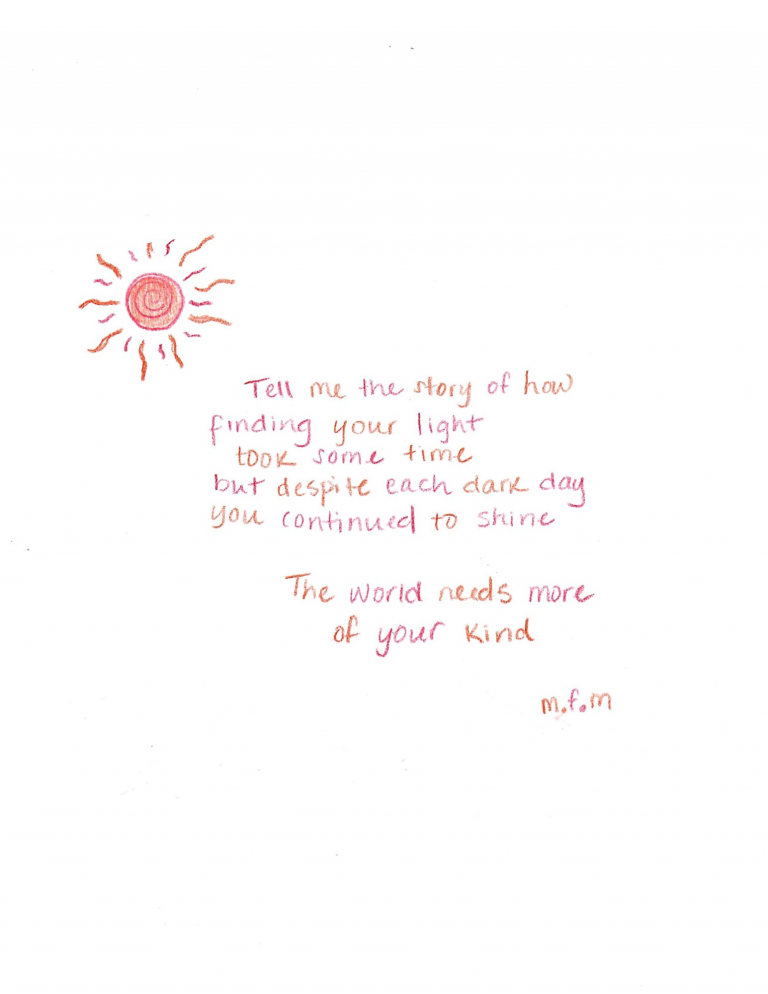 Tell me the story of how
finding your light
took some time
but despite each dark day
you continued to shine
The world needs more
of your kind
m.f.m